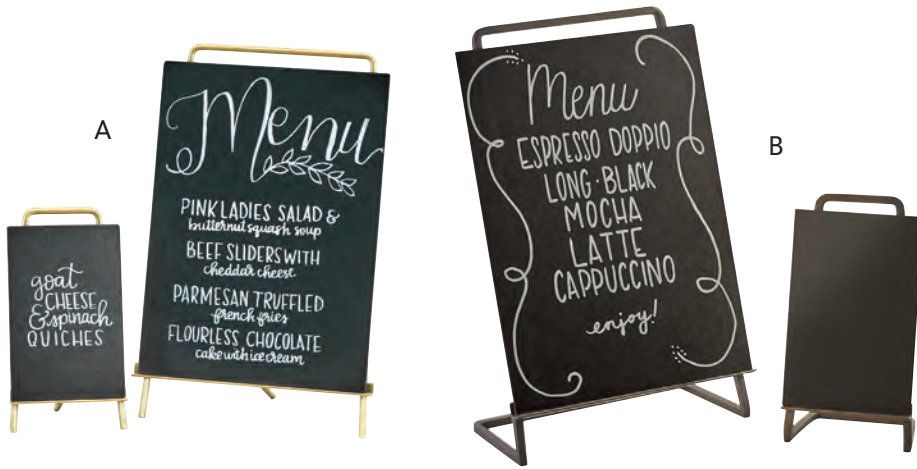 A
goat
CHEESE
& spinach
QUICHES
Menu
PINK LADIES SALAD &
butternut squash soup
BEEF SLIDERS WITH
cheddar cheese
PARMESAN TRUFFLED
french fries
FLOURLESS CHOCOLATE
cake with ice cream
Menu
ESPRESSO DOPPIO
LONG · BLACK
MOCHA
LATTE
CAPPUCCINO
enjoy!
B